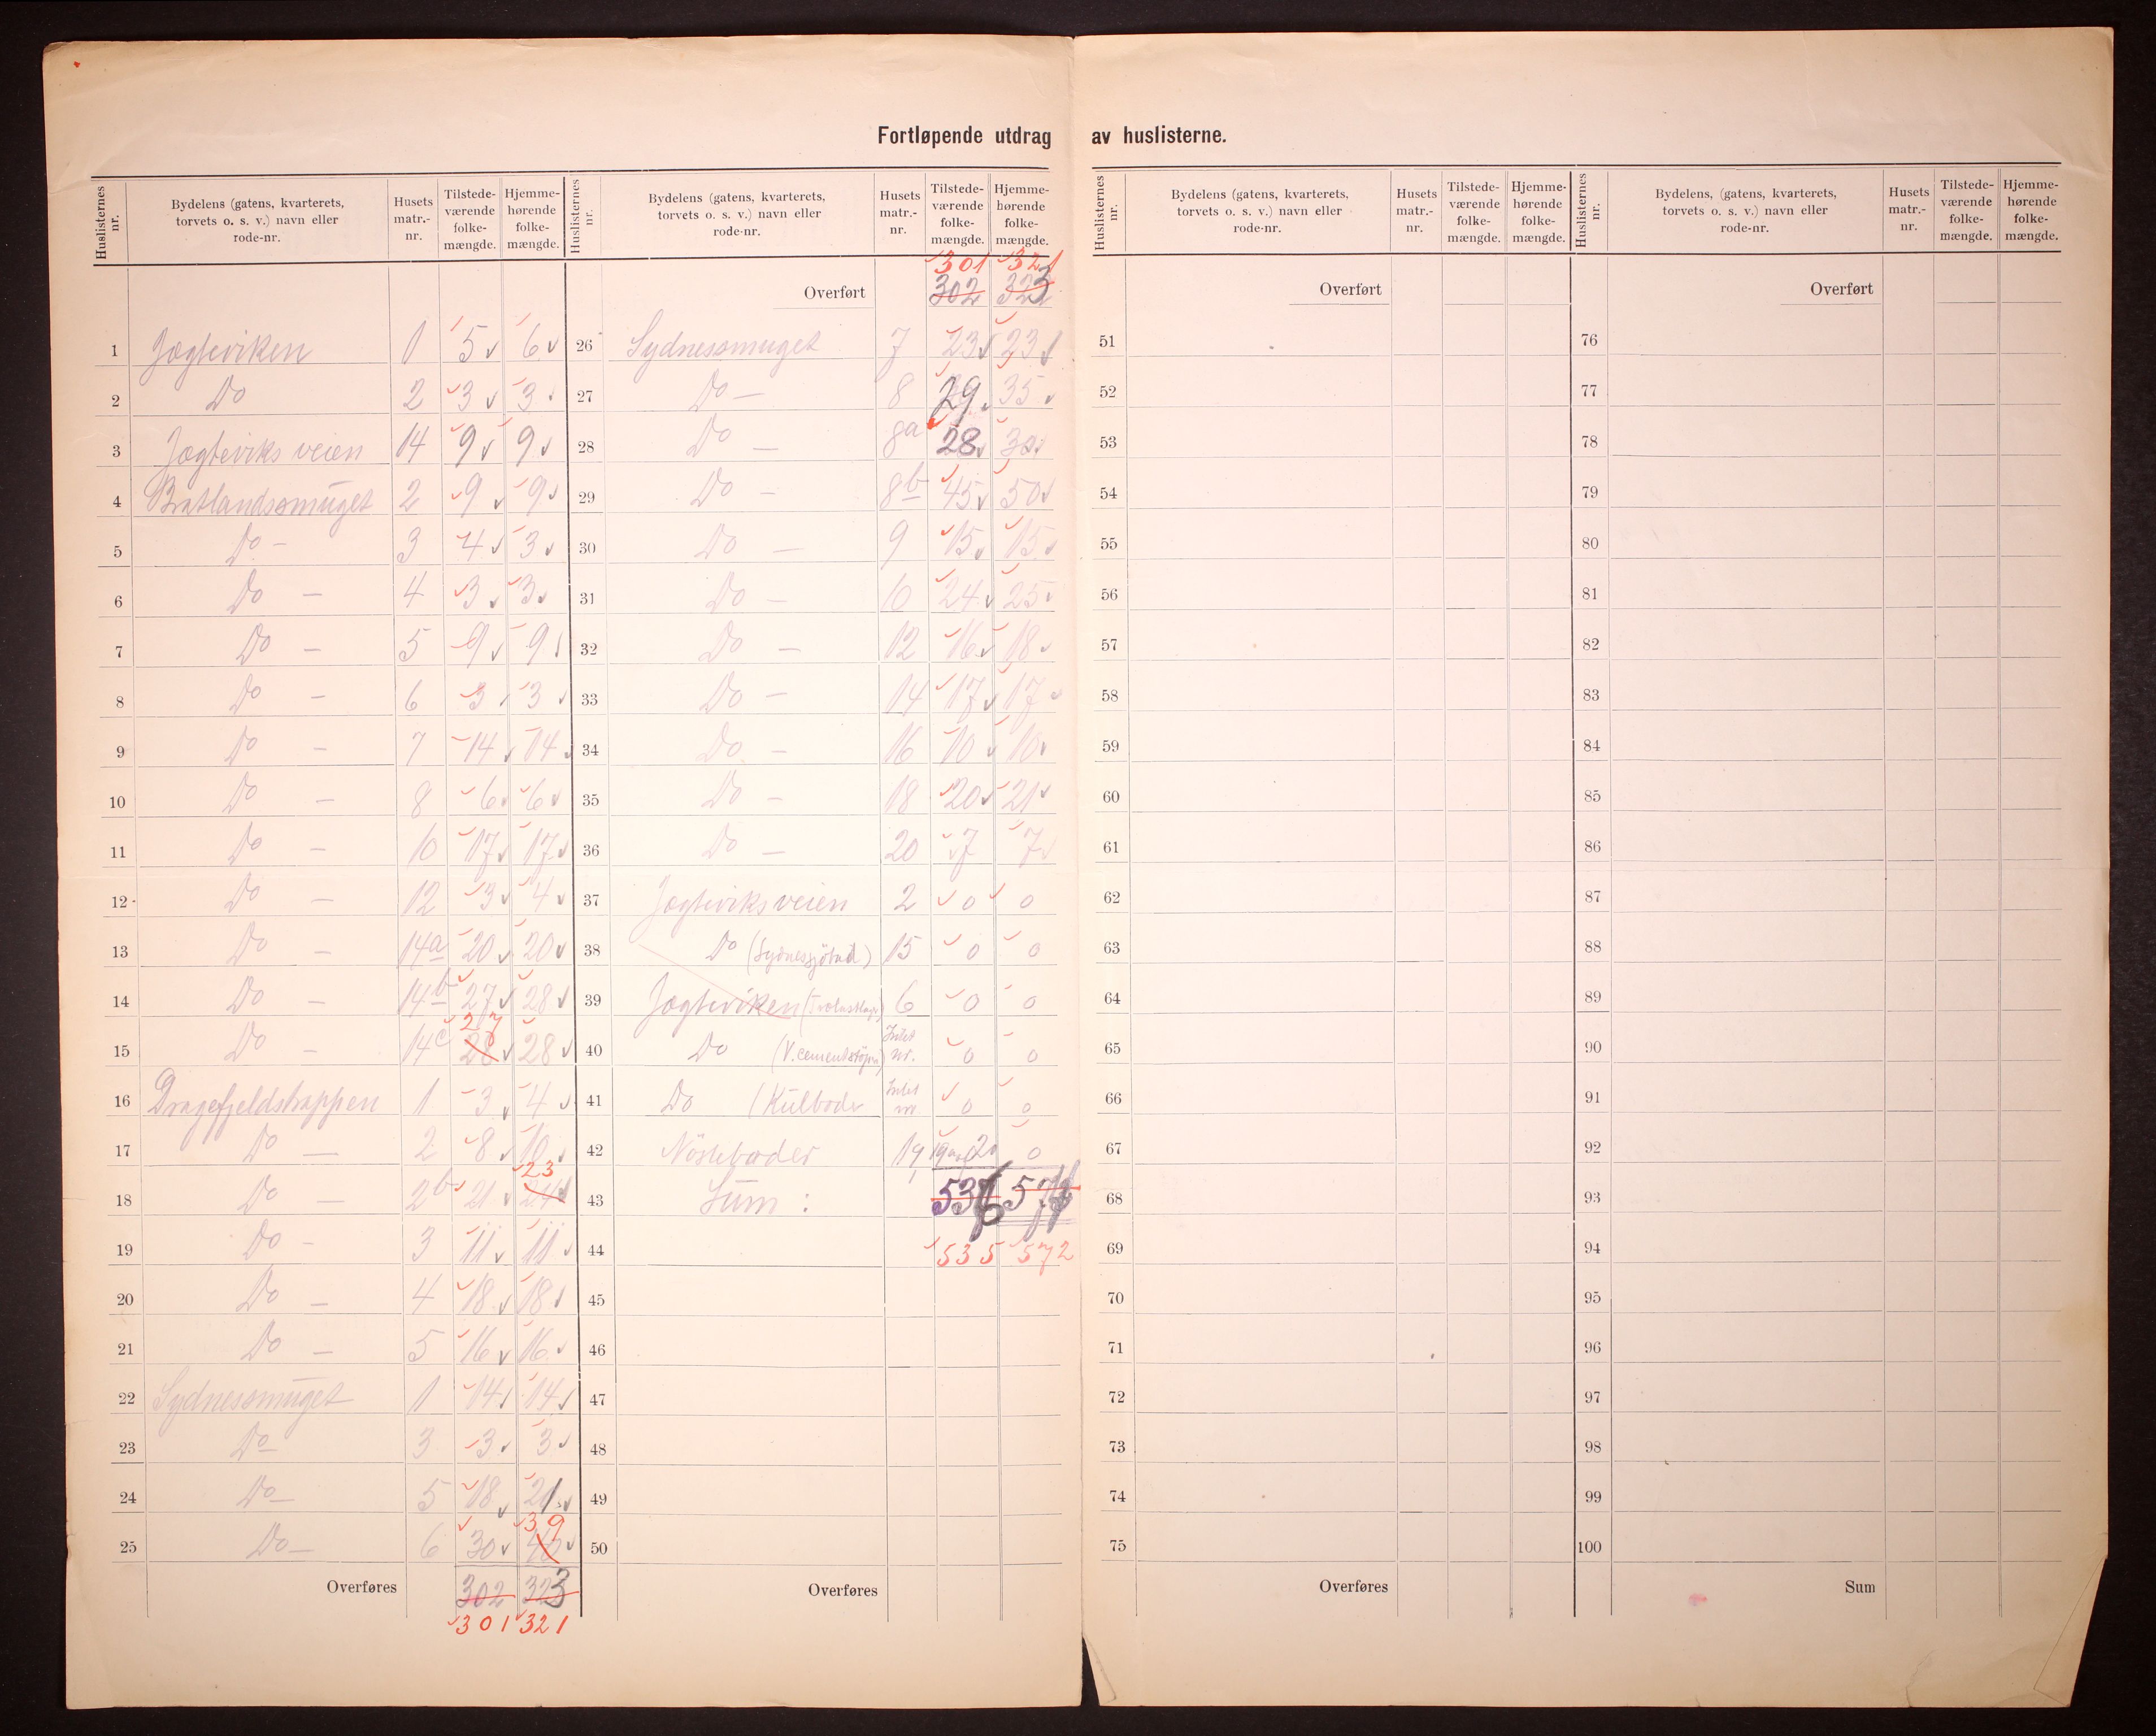 Fortløpende utdrag av huslisterne.
Huslisternes nr. Bydelens (gatens, kvarterets, torvets o. s. v.) navn eller rode-nr. Husets matr.-nr. Tilstede-værende folke-mængde. Hjemme-hørende folke-mængde.
1 Jægteviken 1 5 6
2 Do 2 3 3
3 Jægteviks veien 14 9 9
4 Bratlandssmuget 2 9 9
5 Do - 3 4 3
6 Do - 4 3 3
7 Do - 5 9 9
8 Do - 6 3 3
9 Do - 7 14 14
10 Do - 8 6 6
11 Do - 10 17 17
12 Do - 12 3 4
13 Do - 14a 20 20
14 Do - 14b 27 28
27
15 Do - 14c 28 28
16 Dragefjeldstrappen 1 3 4
17 Do - 2 8 10
23
18 Do - 2b 21 24
19 Do - 3 11 11
20 Do - 4 18 18
21 Do - 5 16 16
22 Sydnessmuget 1 14 14
23 Do 3 3 3
24 Do 5 18 21
39
25 Do - 6 30
Overføres 302 323
301 321
Huslisternes nr. Bydelens (gatens, kvarterets, torvets o. s. v.) navn eller rode-nr. Husets matr.-nr. Tilstede-værende folke-mængde. Hjemme-hørende folke-mængde.
301 321
Overført 302 323
26 Sydnessmuget 7 23 23
27 Do - 8 29 35
28 Do - 8a 28 30
29 Do - 8b 45 50
30 Do - 9 15 15
31 Do - 10 24 25
32 Do - 12 16 18
33 Do - 14 17 17
34 Do - 16 10 10
35 Do - 18 20 21
36 Do - 20 7 7
37 Jægteviksveien 2 0 0
38 Do (Sydnessjöbad) 15 0 0
39 Jægteviken 6 0 0
40 Do (V. cementstöperi) Intet nr. 0 0
41 Do (Kulboder Intet nr. 0 0
42 Nösteboder 19 0
43 Sum :
44 535 572
45
46
47
48
49
50
Overføres
Huslisternes nr. Bydelens (gatens, kvarterets, torvets o. s. v.) navn eller rode-nr. Husets matr.-nr. Tilstede-værende folke-mængde. Hjemme-hørende folke-mængde.
Overført
51
52
53
54
55
56
57
58
59
60
61
62
63
64
65
66
67
68
69
70
71
72
73
74
75
Overføres
Huslisternes nr. Bydelens, (gatens, kvarterets, torvets o. s. v.) navn eller rode-nr. Husets matr.-nr. Tilstede-værende folke-mængde. Hjemme-hørende folke-mængde.
Overført
76
77
78
79
80
81
82
83
84
85
86
87
88
89
90
91
92
93
94
95
96
97
98
99
100
Sum